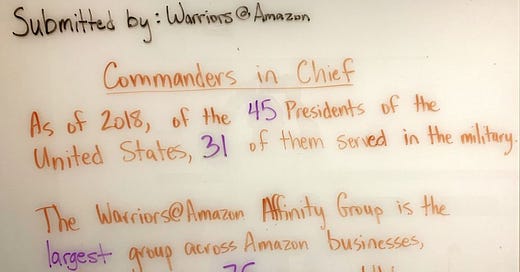 Submitted by: Warriors@Amazon
Commanders in Chief
As of 2018, of the 45 Presidents of the
United States, 31 of them served in the military.
The Warriors@Amazon Affinity Group is the
largest group across Amazon businesses,